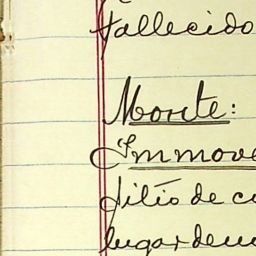 fallecido
Monte:
Immove
filio de c
lugar de u